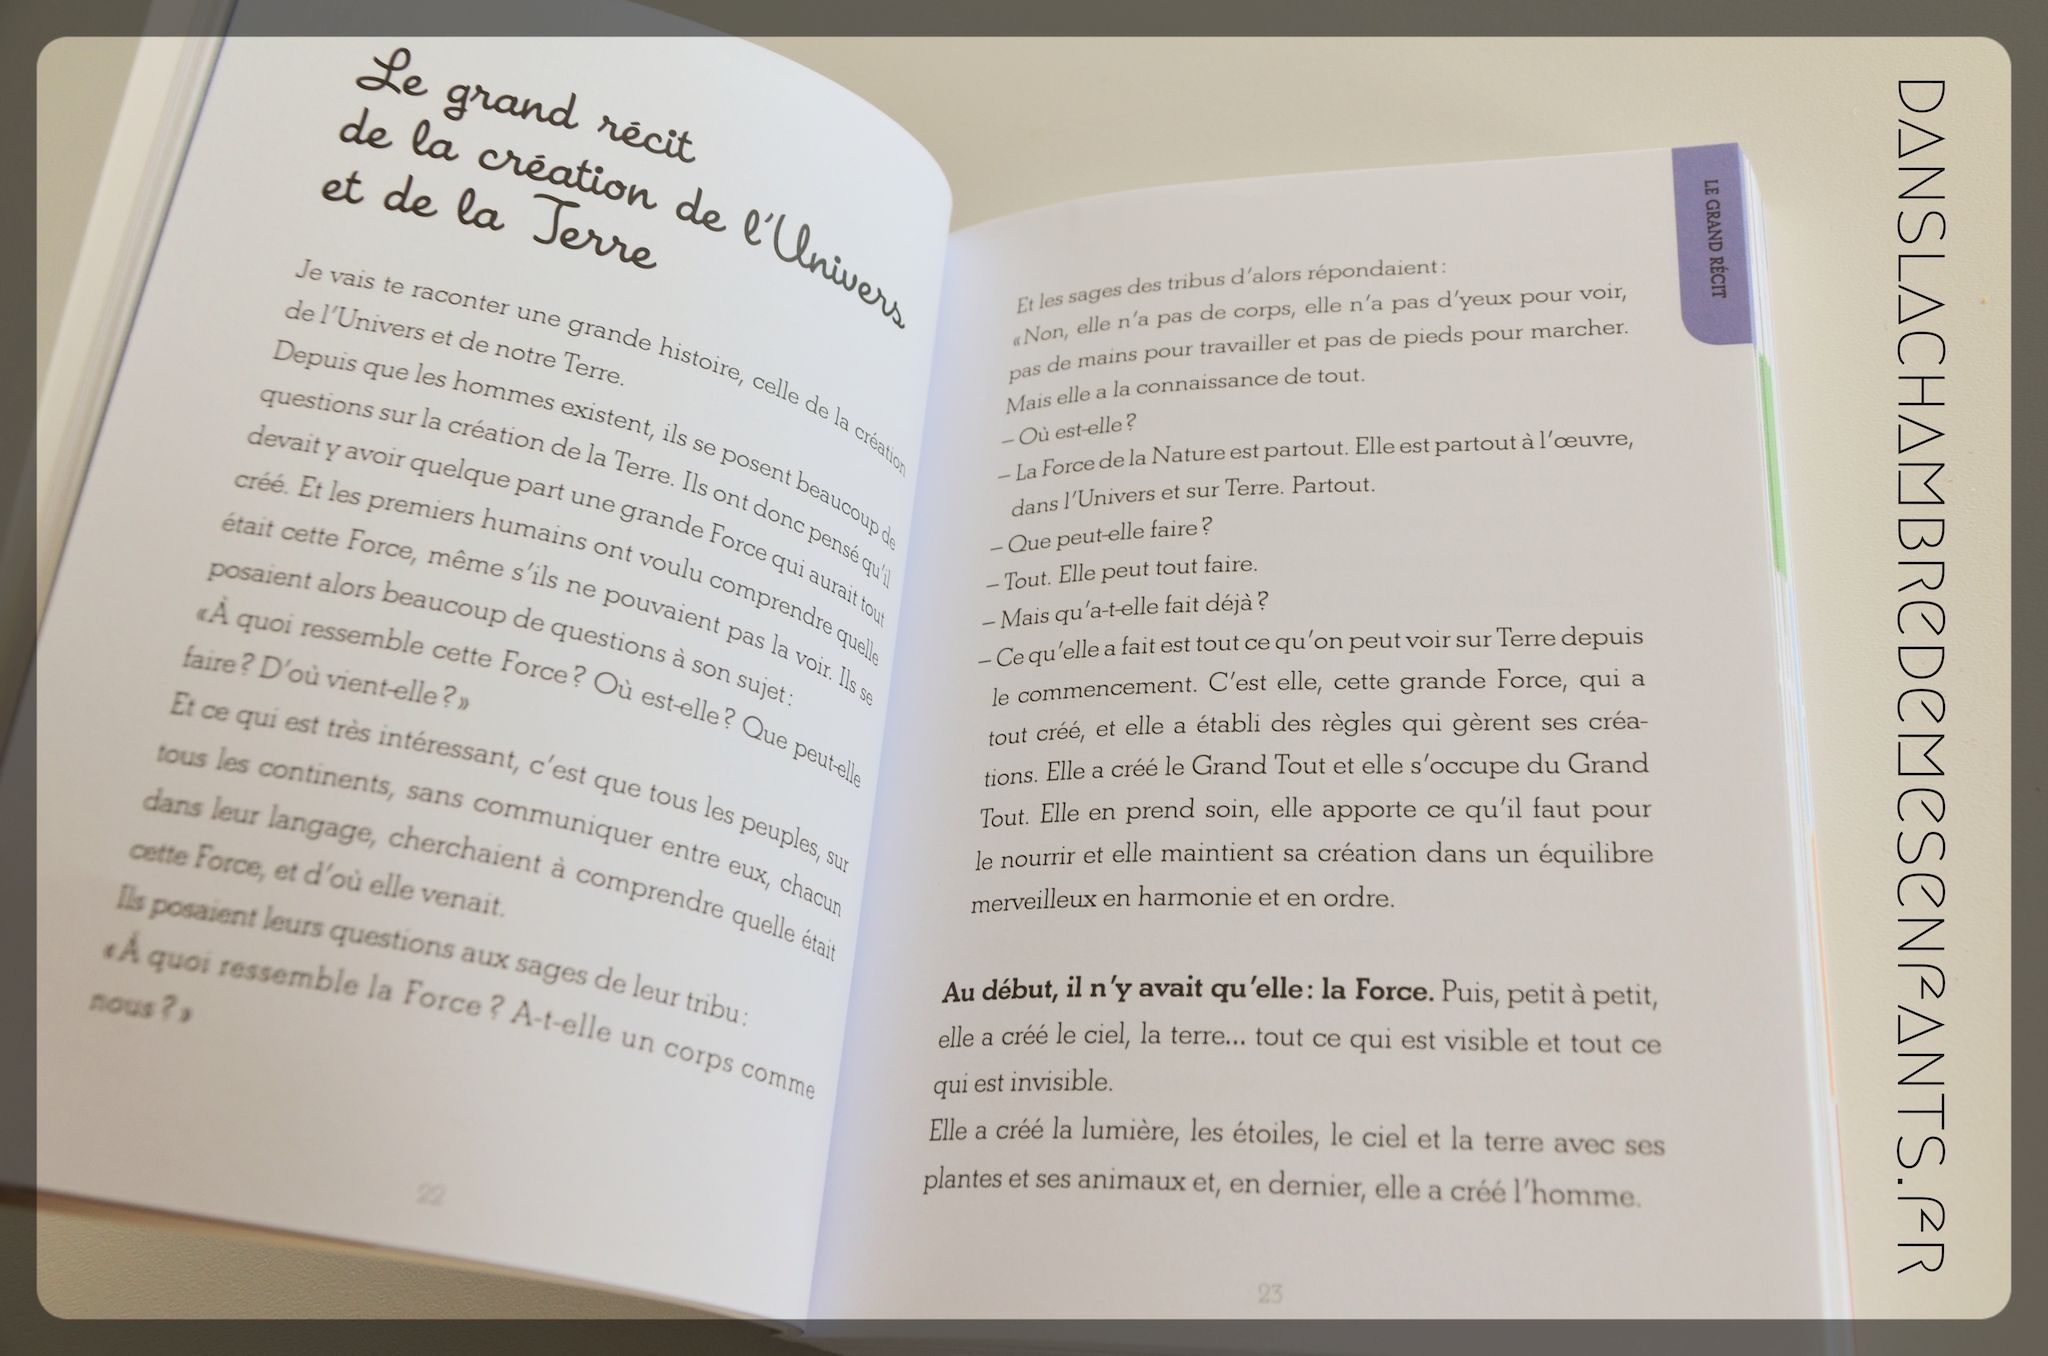 Le grand récit
de la création de l'Univers
et de la Terre
Je vais te raconter une grande histoire, celle de la création
de l'Univers et de notre Terre.
Depuis que les hommes existent, ils se posent beaucoup de
questions sur la création de la Terre. Ils ont donc pensé qu'il
devait y avoir quelque part une grande Force qui aurait tout
créé. Et les premiers humains ont voulu comprendre quelle
était cette Force, même s'ils ne pouvaient pas la voir. Ils se
posaient alors beaucoup de questions à son sujet :
«À quoi ressemble cette Force ? Où est-elle ? Que peut-elle
faire ? D'où vient-elle ?»
Et ce qui est très intéressant, c'est que tous les peuples, sur
tous les continents, sans communiquer entre eux, chacun
dans leur langage, cherchaient à comprendre quelle était
cette Force, et d'où elle venait.
Ils posaient leurs questions aux sages de leur tribu :
«À quoi ressemble la Force ? A-t-elle un corps comme
nous ?»
22
LE GRAND RÉCIT
Et les sages des tribus d'alors répondaient :
«Non, elle n'a pas de corps, elle n'a pas d'yeux pour voir,
pas de mains pour travailler et pas de pieds pour marcher.
Mais elle a la connaissance de tout.
– Où est-elle ?
– La Force de la Nature est partout. Elle est partout à l'œuvre,
dans l'Univers et sur Terre. Partout.
– Que peut-elle faire ?
– Tout. Elle peut tout faire.
– Mais qu'a-t-elle fait déjà ?
– Ce qu'elle a fait est tout ce qu'on peut voir sur Terre depuis
le commencement. C'est elle, cette grande Force, qui a
tout créé, et elle a établi des règles qui gèrent ses créa-
tions. Elle a créé le Grand Tout et elle s'occupe du Grand
Tout. Elle en prend soin, elle apporte ce qu'il faut pour
le nourrir et elle maintient sa création dans un équilibre
merveilleux en harmonie et en ordre.
Au début, il n'y avait qu'elle : la Force. Puis, petit à petit,
elle a créé le ciel, la terre... tout ce qui est visible et tout ce
qui est invisible.
Elle a créé la lumière, les étoiles, le ciel et la terre avec ses
plantes et ses animaux et, en dernier, elle a créé l'homme.
23
DANSLACHAMBREDEMESENFANTS.FR